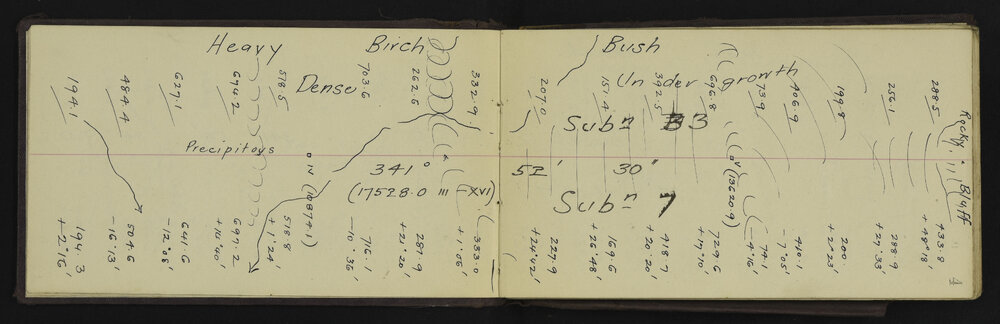 Heavy Birch Bush
Dense Undergrowth
194.1
484.4
627.1
674.2
518.5
703.6
262.6
332.9
207.0
157.4
392.5
696.8
73.9
406.9
199.8
256.1
288.5
Rocky Bluff
Subⁿ B3
Precipitoys
341° 52' 30"
(17528.0 III - XVI)
Subⁿ 7
194.3
+2°16'
504.6
-16°13'
641.6
-12°06'
697.2
+14°40'
518.8
+1°24'
716.1
-10°36'
281.9
+21°20'
333.0
+1°06'
227.9
+24°42'
169.6
+26°48'
418.7
+20°20'
729.6
74.1
-4°16'
410.1
-7°05'
200.1
288.9
+27°33'
433.8
+48°18'
4